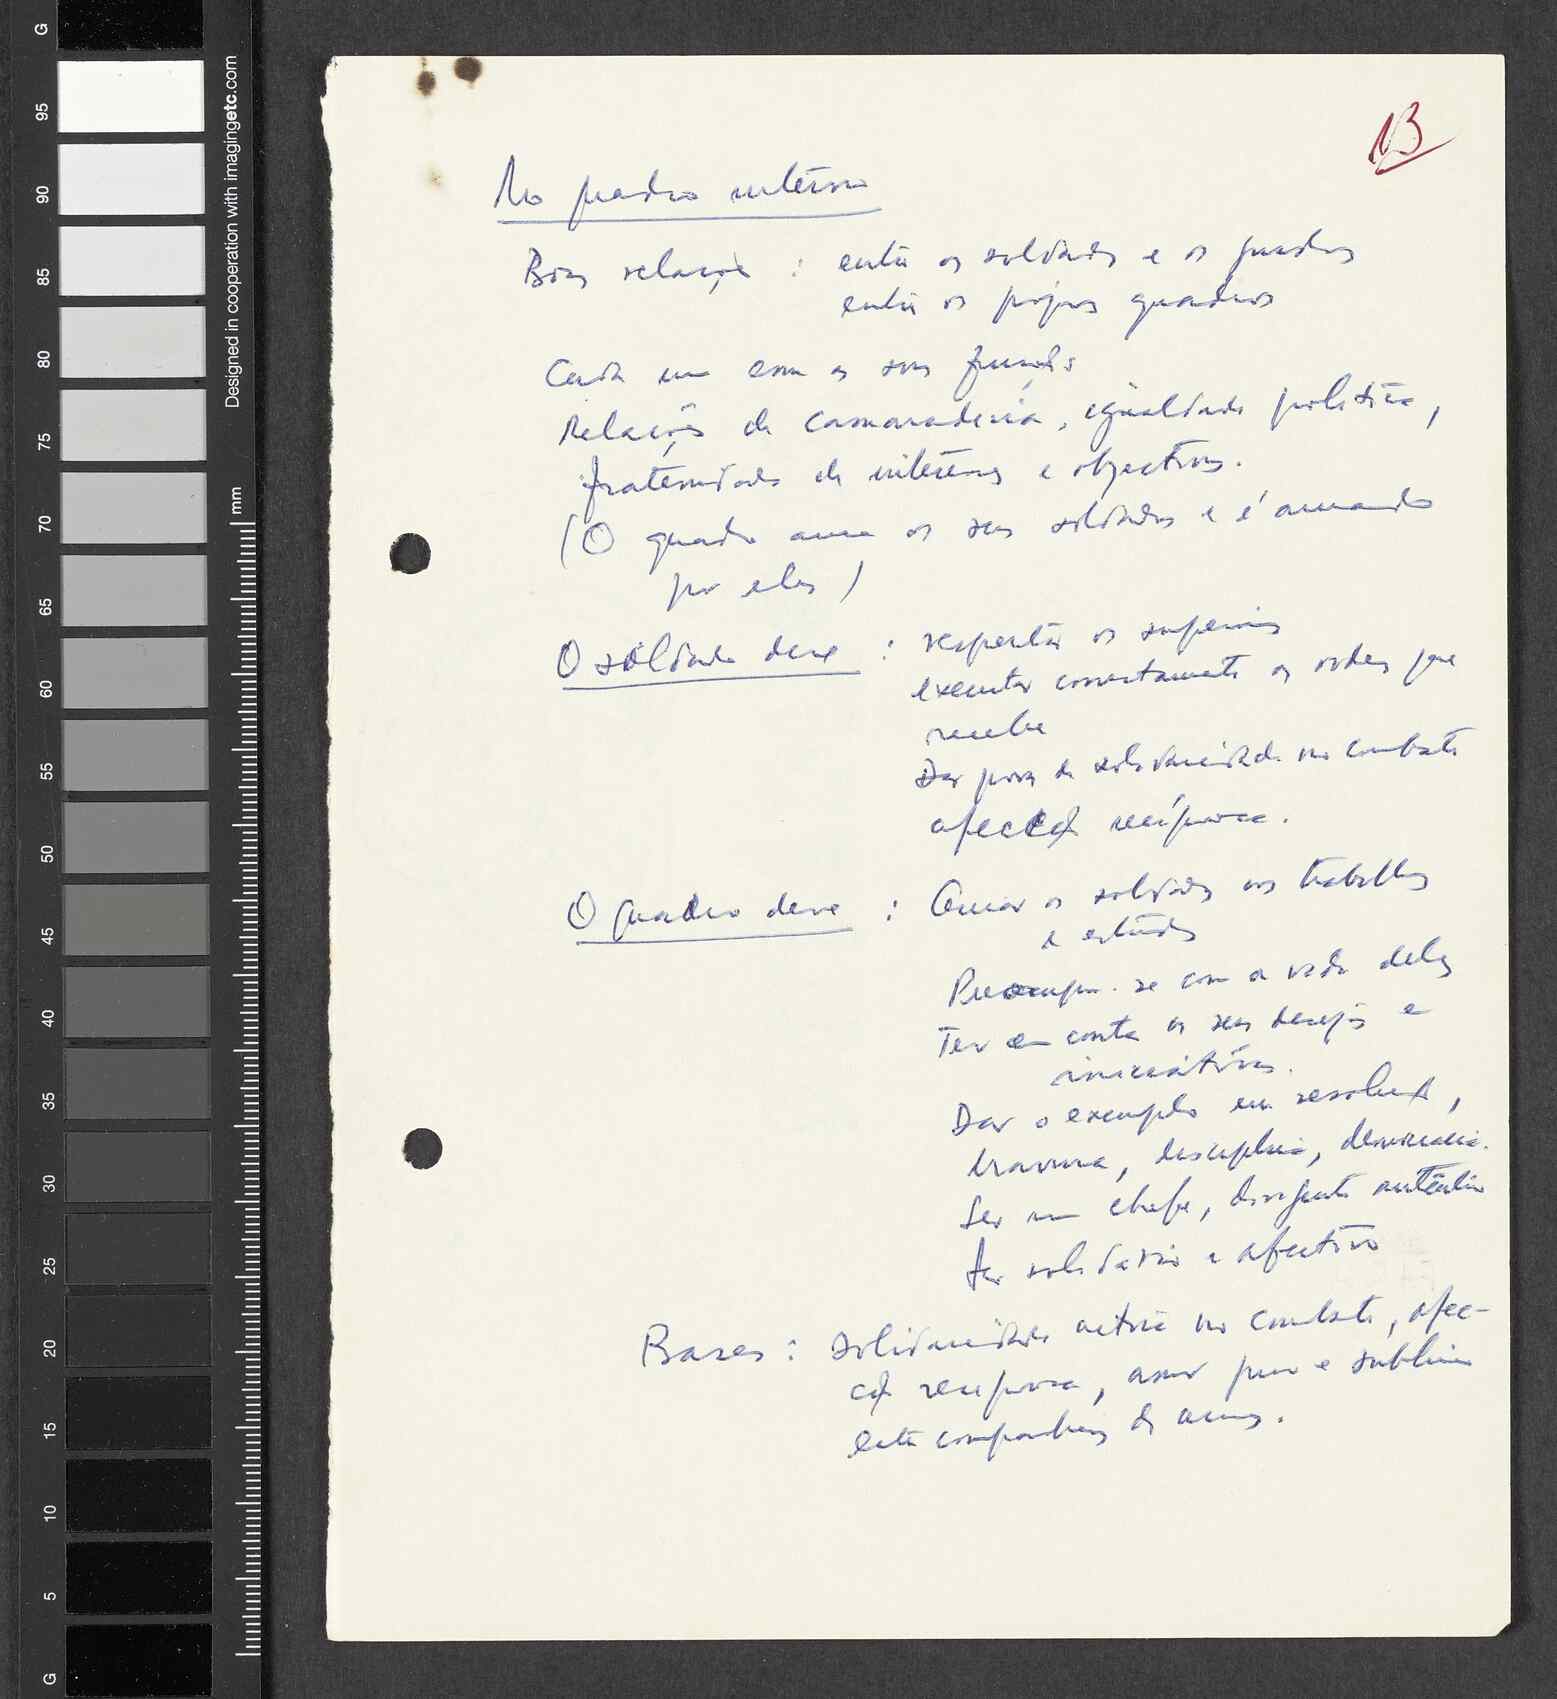 13
No quadro interno
Boas relações : entre os soldados e os quadros
entre os próprios quadros
Cada um com as suas funções
Relações de camaradaria, igualdade política,
fraternidade de interesses e objectivos.
(O quadro ama os seus soldados e é amado
por eles)
O soldado deve : respeitar os superiores
executar correctamente as ordens que
recebe
Dar prova de solidariedade no combate
afecção recíproca.
O quadro deve : Amar os soldados nos trabalhos
e estudos
Preocupar-se com a vida deles
Ter em conta os seus desejos e
iniciativas.
Dar o exemplo em resolução,
bravura, disciplina, democracia.
Ser um chefe, dirigente autêntico
Ser solidário e afectivo
Bases : solidariedade activa no combate, afec-
ção recíproca, amor puro e sublime
entre companheiros de armas.
G
95
90
85
80
75
70
65
60
55
50
45
40
35
30
25
20
15
10
5
G
Designed in cooperation with imagingetc.com
mm